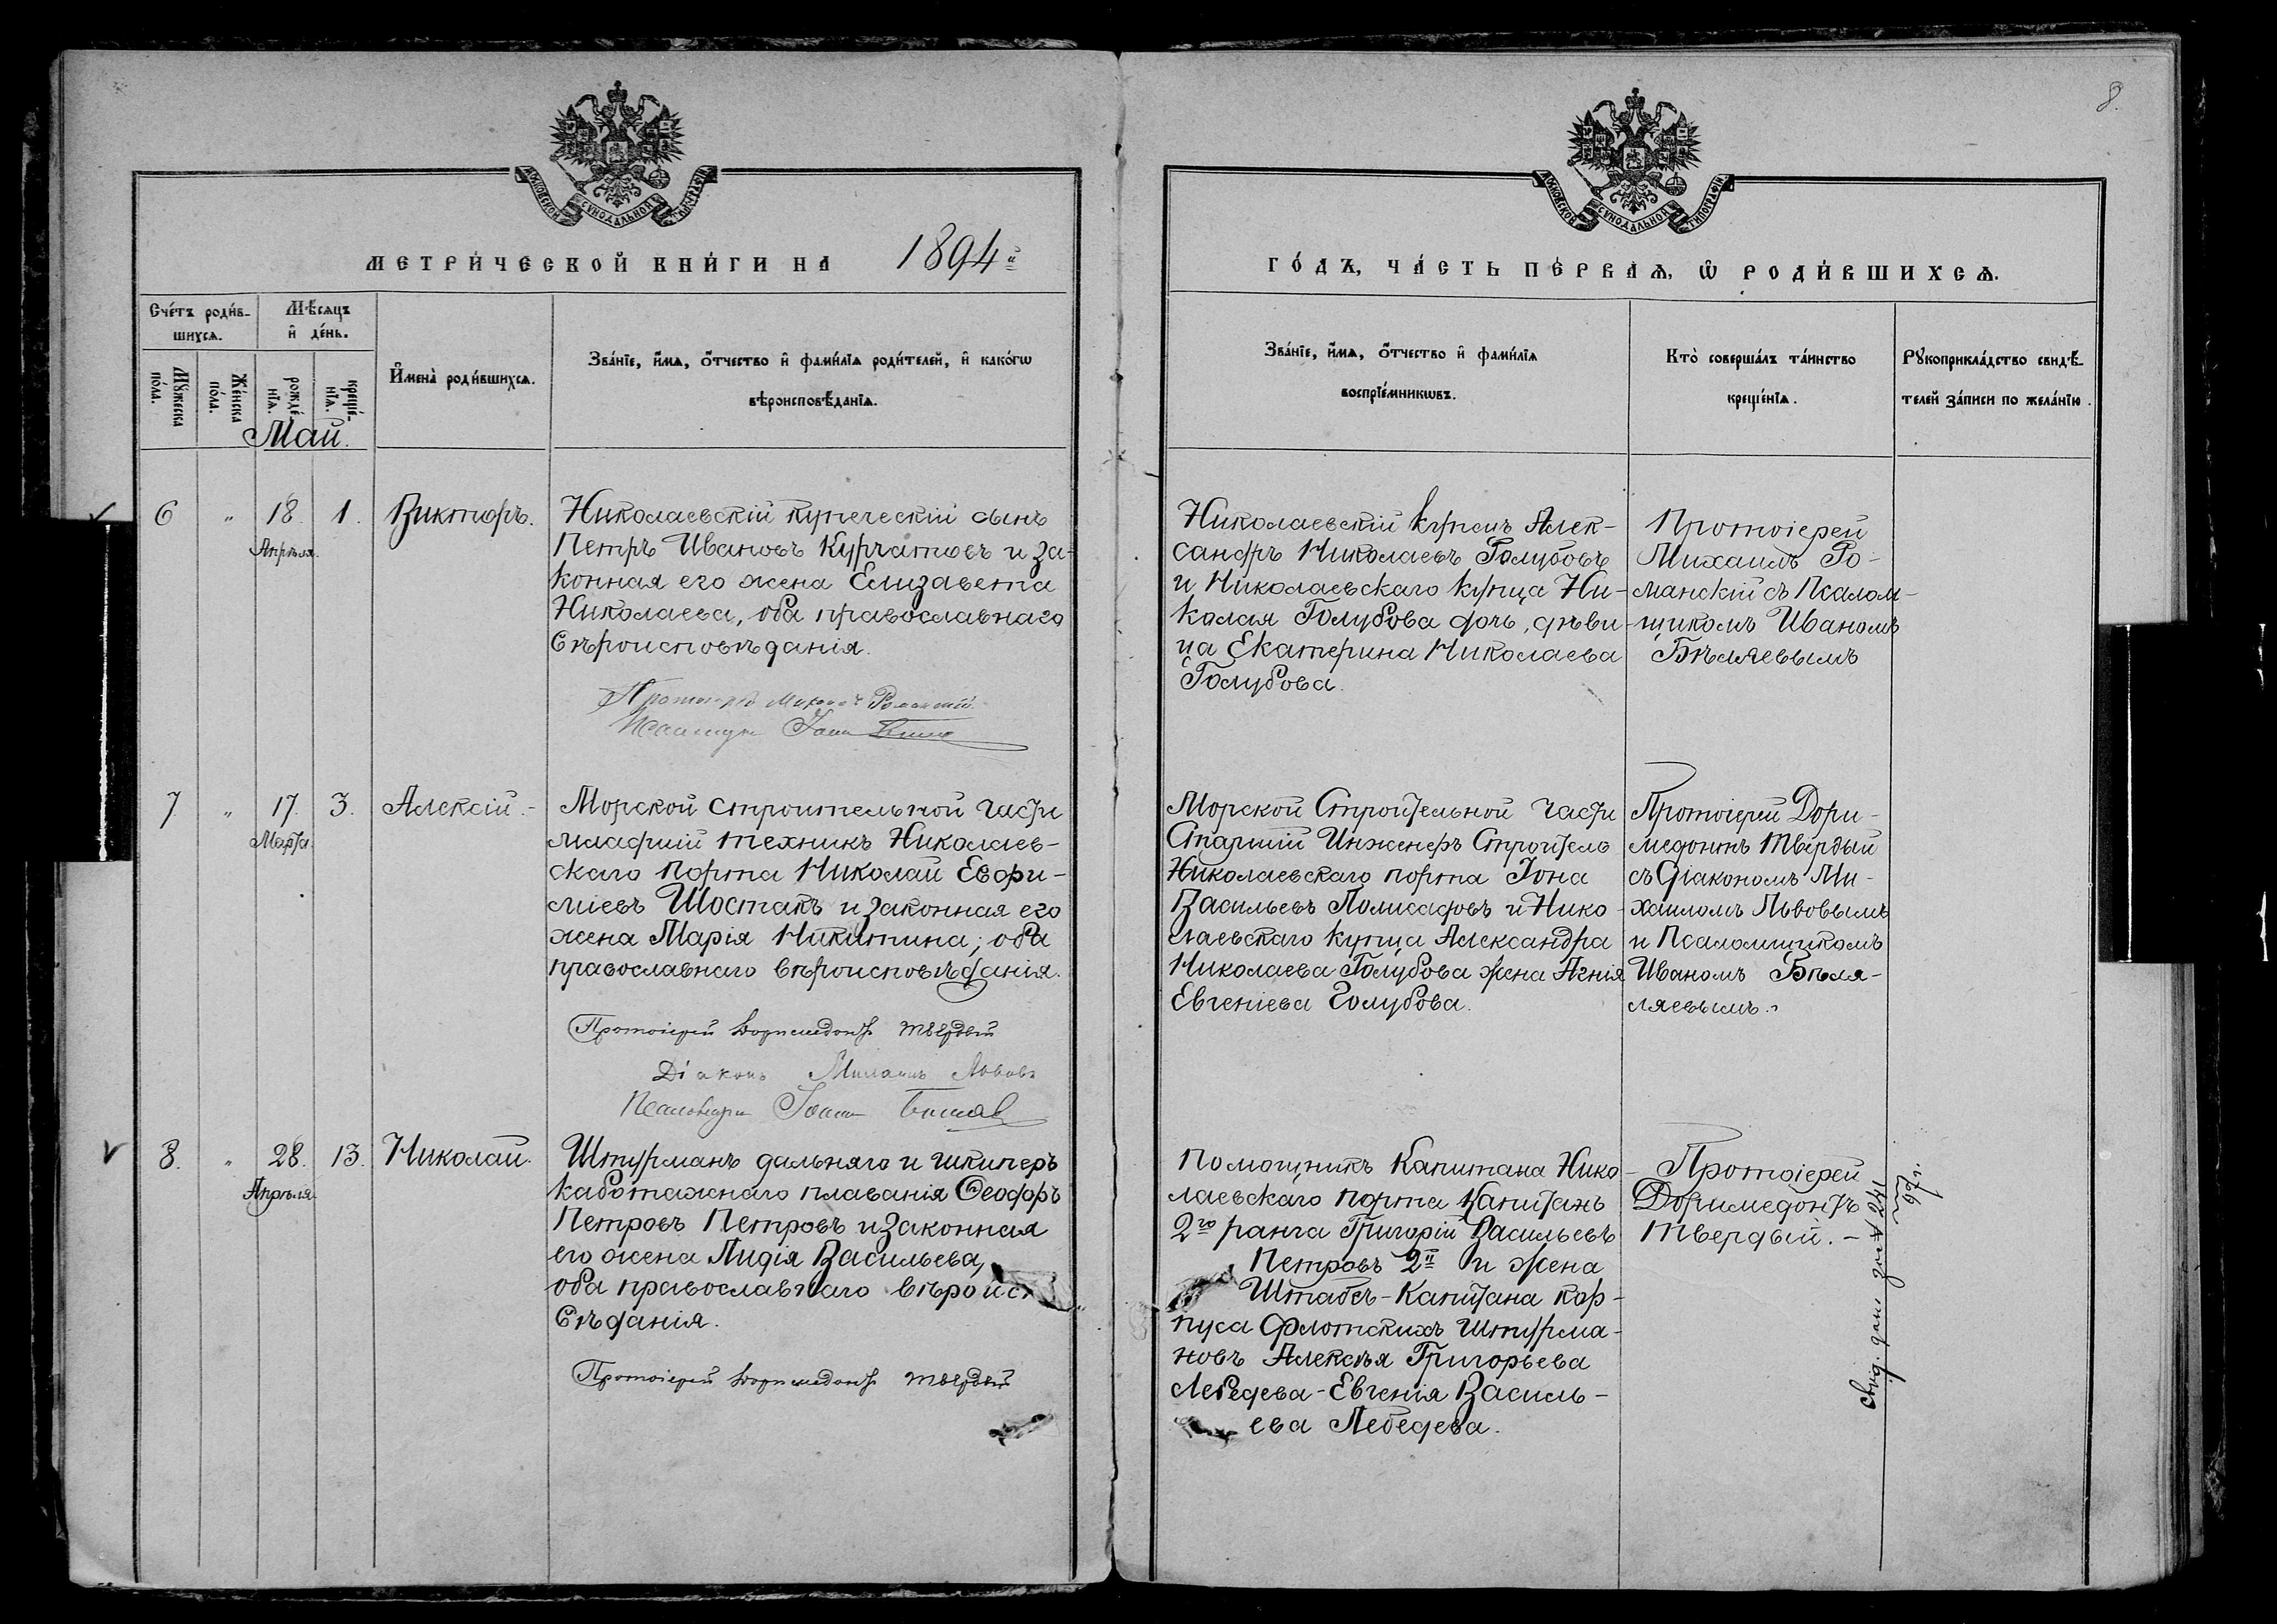 8.
МОСКОВСКОЙ СѴНОДАЛЬНОЙ ТИПОГРАФІИ
МОСКОВСКОЙ СѴНОДАЛЬНОЙ ТИПОГРАФІИ
МЕТРИ́ЧЕСКОЙ КНИ́ГИ НА 1894й
ГО́ДЪ, ЧА́СТЬ ПЕ́РВАѦ, Ѡ҆ РОДИ́ВШИХСѦ.
Сче́тъ роди́в-
шихсѧ.
Мѣ́сѧцъ
и҆ де́нь.
Мꙋ́жеска
по́ла.
Же́нска
по́ла.
рожде́-
нїѧ.
креще́-
нїѧ.
И҆мена̀ роди́вшихсѧ.
Зва́нїе, и҆́мѧ, ѻ҆́тчество и҆ фами́лїѧ роди́телей, и҆ како́гѡ
вѣроисповѣ́данїѧ.
Зва́нїе, и҆́мѧ, ѻ҆́тчество и҆ фами́лїѧ
воспрїе́мникѡвъ.
Кто̀ соверша́лъ та́инство
креще́нїѧ.
Рꙋкоприкла́дство свидѣ́-
телей за́писи по жела́нїю.
Май.
6 " 18. 1. Викторъ.
Апрѣля.
Николаевскій купеческій сынъ
Петръ Ивановъ Курчатовъ и за-
конная его жена Елизавета
Николаева, оба православнаго
вѣроисповѣданія.
Протоіерей Михаилъ Романскій
Псаломщ Іоан
Николаевскій купецъ Алек-
сандръ Николаевъ Голубовъ
и Николаевскаго купца Ни-
колая Голубова дочь, дѣви-
ца Екатерина Николаева
Голубова.
Протоіерей
Михаилъ Ро-
манскій съ Псалом-
щикомъ Иваномъ
Бѣляевымъ
7. " 17. 3. Алексій.-
Марта.
Морской строительной части
младшій техникъ Николаев-
скаго порта Николай Евфи-
міевъ Шостакъ и законная его
жена Марія Никитина; оба
православнаго вѣроисповѣданія.
Протоіерей Доримедонтъ Твердый
Діаконъ Михаилъ Львовъ
Псаломщи Іоанн
Морской Строительной части
Старшій Инженеръ Строитель
Николаевскаго порта Іона
Васильевъ Полисадовъ и Нико-
лаевскаго купца Александра
Николаева Голубова жена Агнія
Евгеніева Голубова.
Протоіерей Дори-
медонтъ Твердый
съ Діакономъ Ми-
хаиломъ Львовымъ
и Псаломщикомъ
Иваномъ Бѣля-
ляевымъ.
8. " 28. 13. Николай.
Апрѣля.
Штурманъ дальняго и шкиперъ
каботажнаго плаванія Ѳеодоръ
Петровъ Петровъ и законная
его жена Лидія Васильева,
оба православнаго вѣроисп
вѣданія.
Протоіерей Доримедонтъ Твердый
Помощникъ Капитана Нико-
лаевскаго порта Капитанъ
2го ранга Григорій Васильевъ
Петровъ 2й и жена
Штабсъ-Капитана кор-
пуса Флотскихъ Штурма-
новъ Алексѣя Григорьева
Лебедева-Евгенія Василь-
ева Лебедева.
Протоіерей
Доримедонтъ
Твердый.-
свид. дан № 241
97 г.